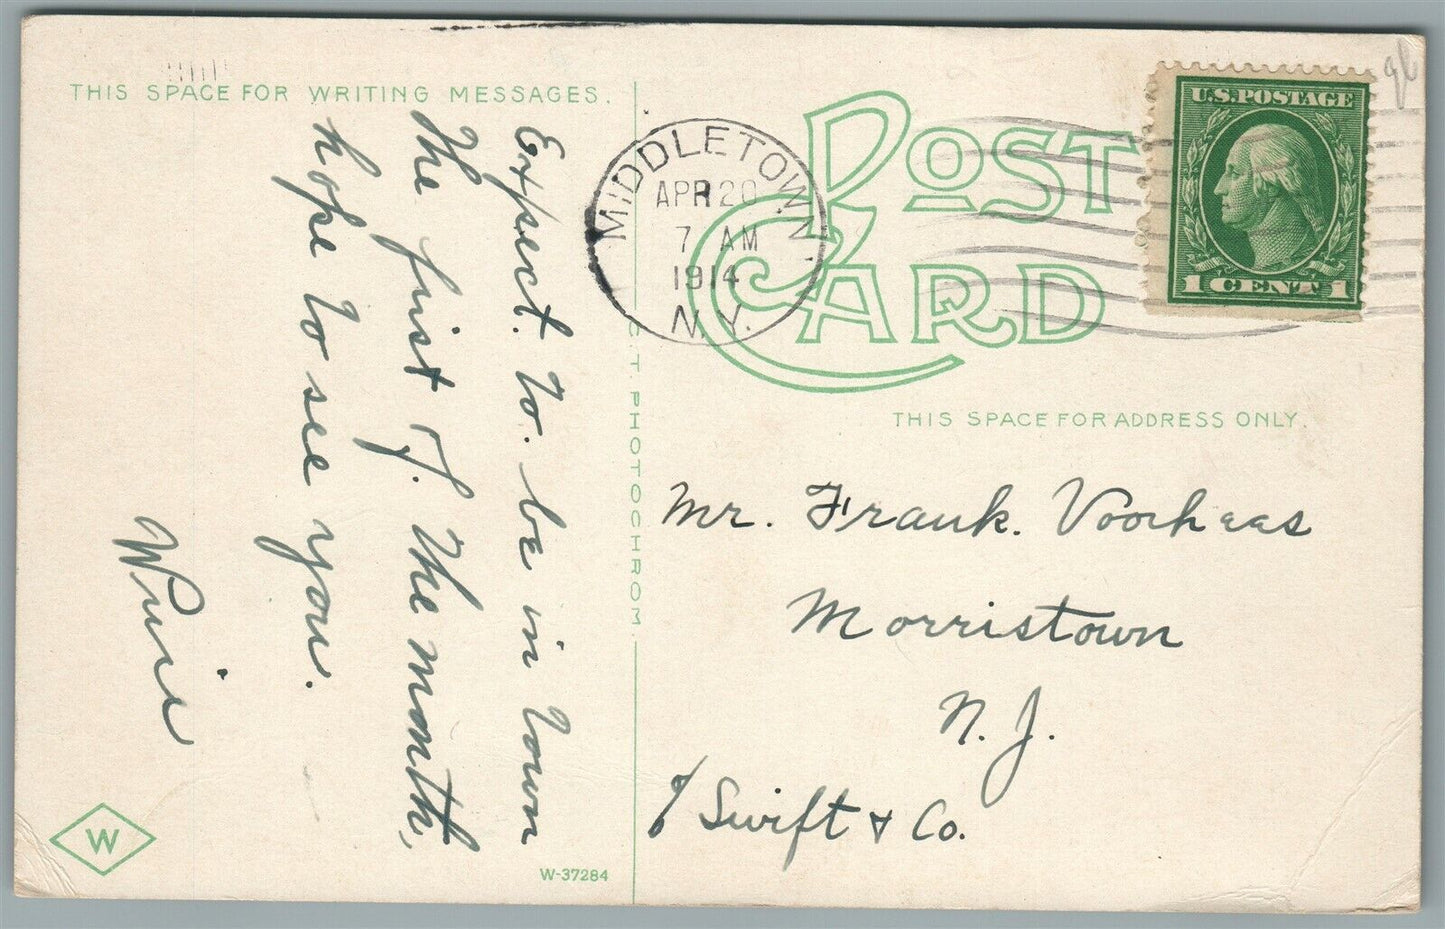 THIS SPACE FOR WRITING MESSAGES.
Expect. to. be in town
the first of. the month,
hope to see you.
Winie
W
W-37284
C.T. PHOTOCHROM.
MIDDLETOWN,
APR 20
7 AM
1914
N.Y.
POST
CARD
U.S. POSTAGE
1 CENT 1
THIS SPACE FOR ADDRESS ONLY.
Mr. Frank. Voorheeas
Morristown
N. J.
% Swift & Co.